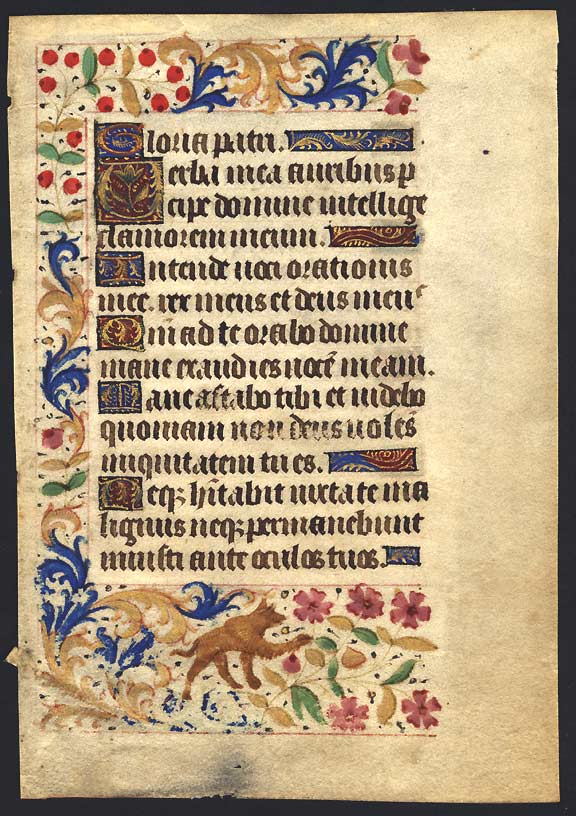 Gloria patri.
Verba mea auribus p
cipe domine intellige
clamorem meum.
Intende uoci orationis
mee. rex meus et deus meus
Qm̄ ad te orabo domine
mane exaudies uocē meam.
Mane astabo tibi et uidebo
quoniam non deus uolēs
iniquitatem tu es.
Neqꝫ hītabit iuxta te ma
lignus neqꝫ permanebunt
iniusti ante oculos tuos.